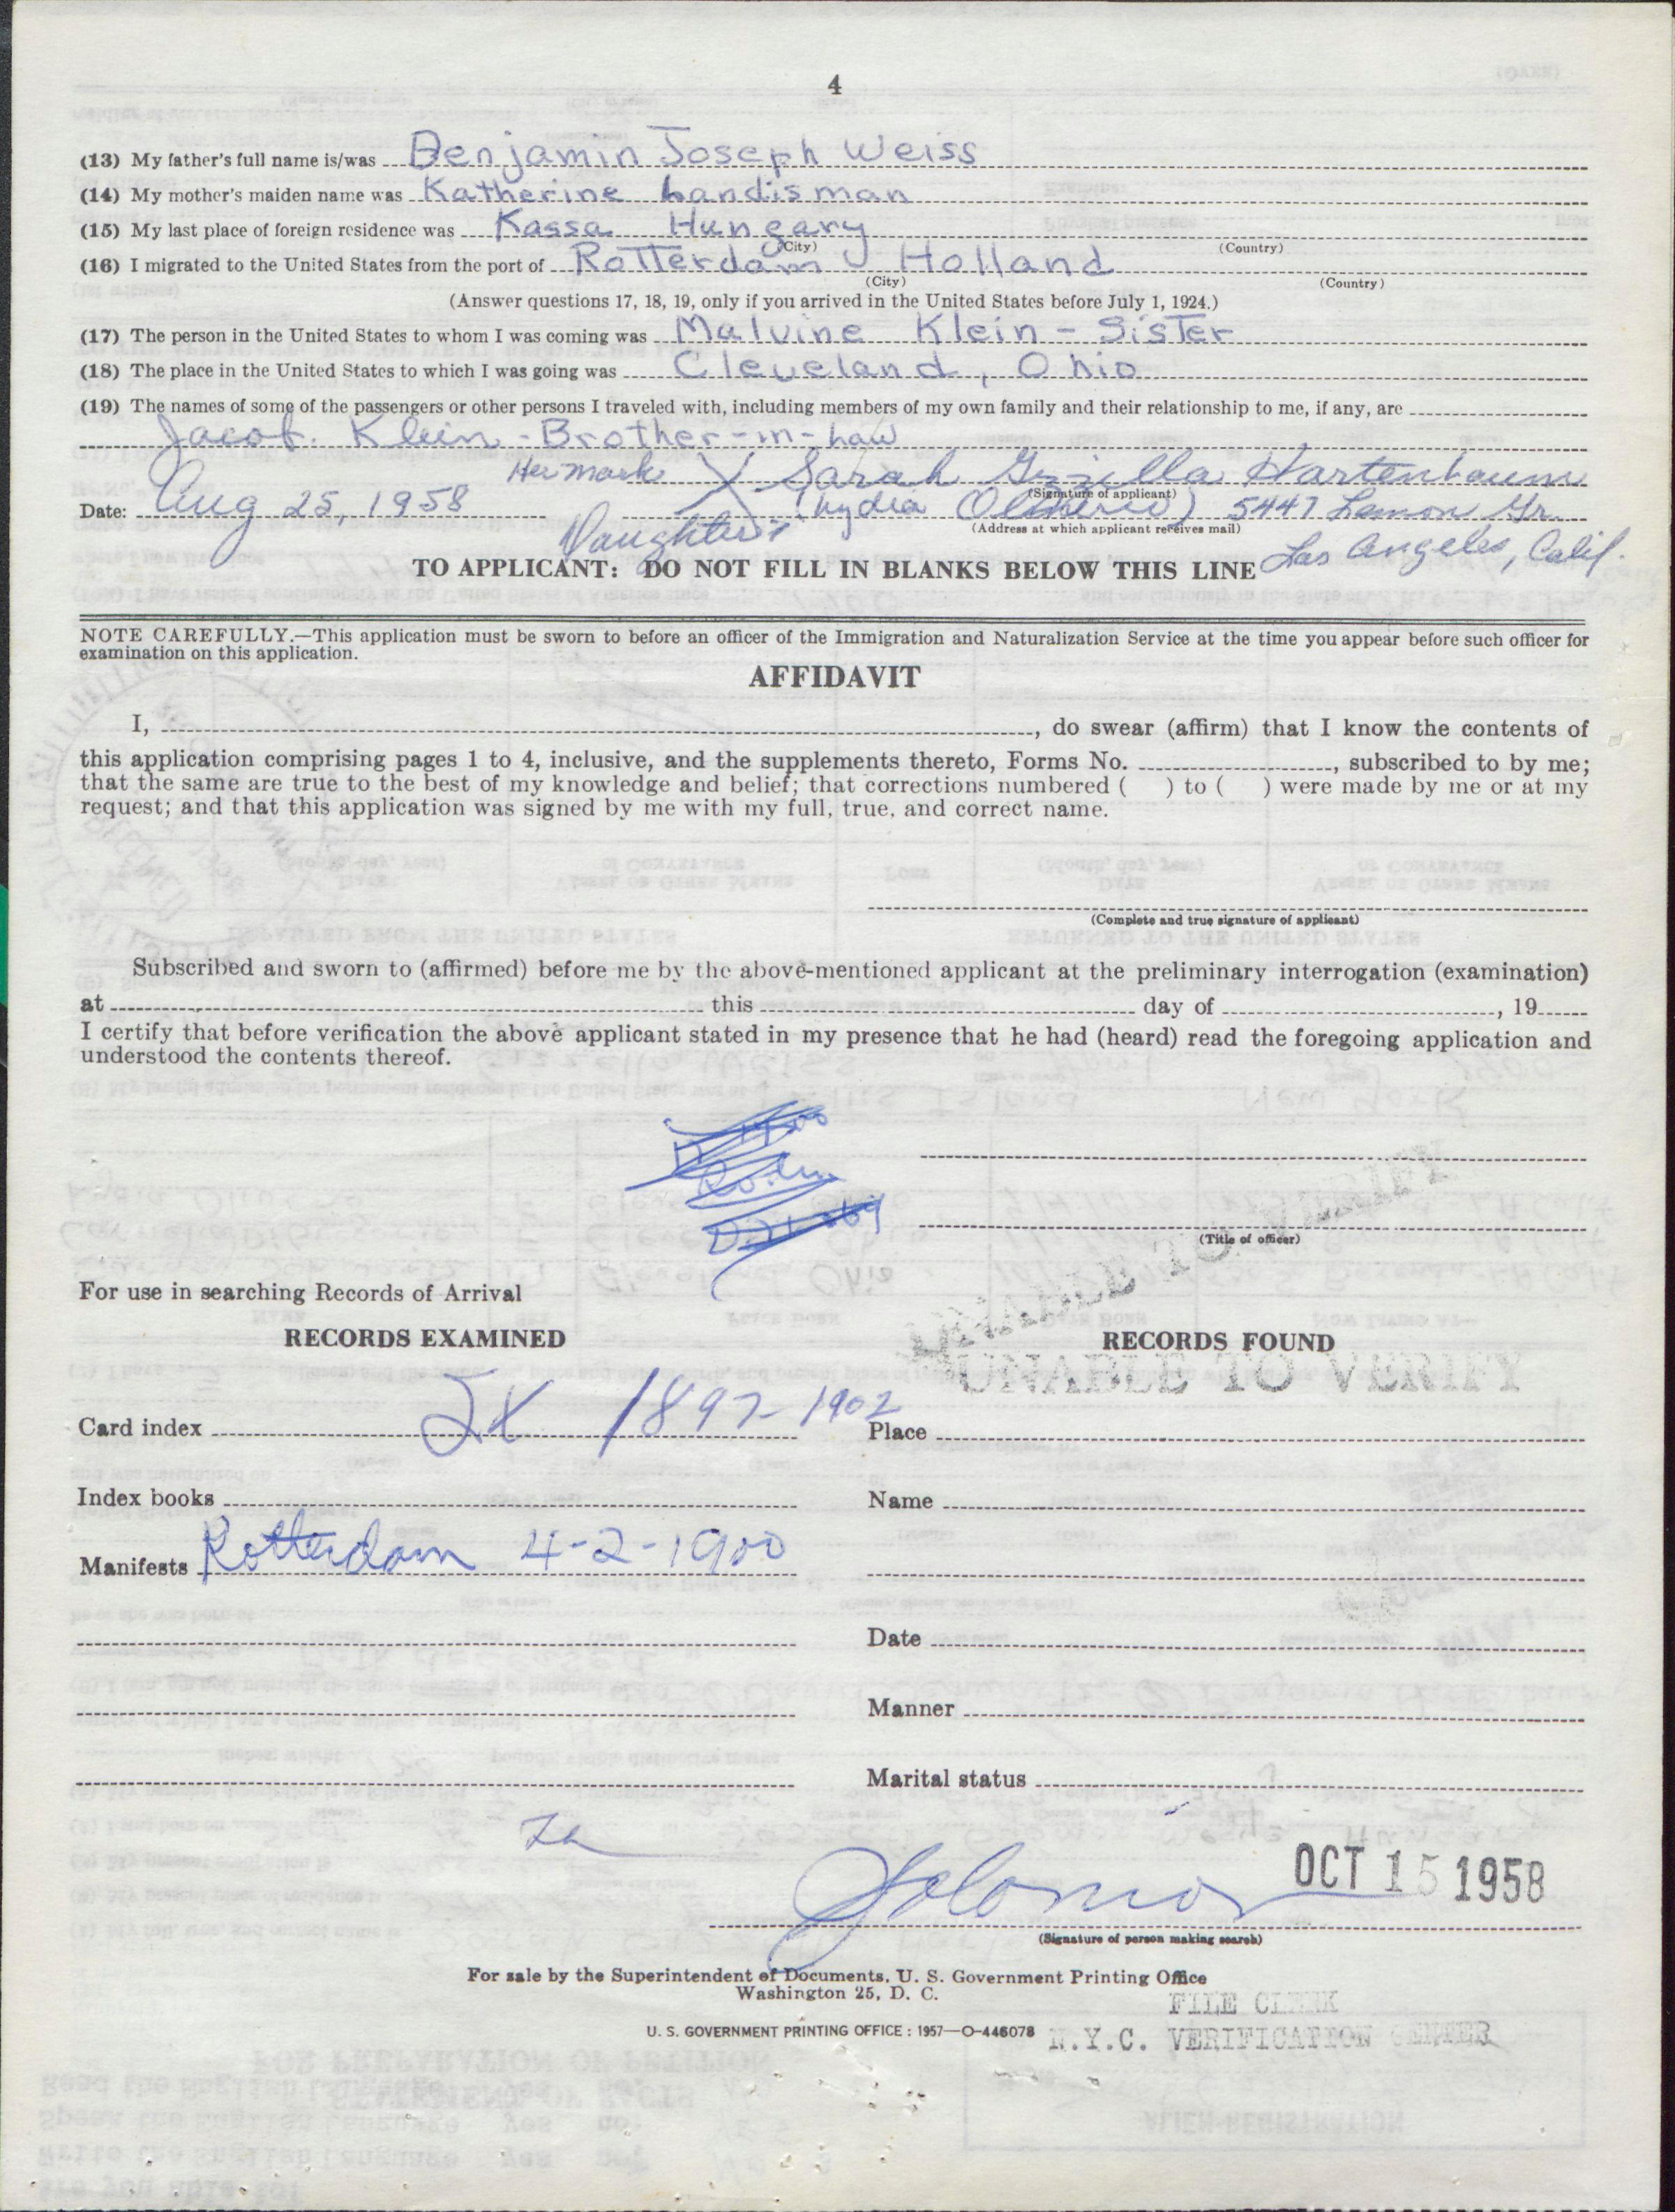 4
(13) My father's full name is/was Benjamin Joseph Weiss
(14) My mother's maiden name was Katherine Landisman
(15) My last place of foreign residence was Kassa Hungary
(City) (Country)
(16) I migrated to the United States from the port of Rotterdam Holland
(City) (Country)
(Answer questions 17, 18, 19, only if you arrived in the United States before July 1, 1924.)
(17) The person in the United States to whom I was coming was Malvine Klein - Sister
(18) The place in the United States to which I was going was Cleveland, Ohio
(19) The names of some of the passengers or other persons I traveled with, including members of my own family and their relationship to me, if any, are
Jacob Klein - Brother-in-Law
Her mark X Sarah Gizella Hartenbaum
(Signature of applicant)
Date: Aug 25, 1958 (Lydia 5447 Lemon Gr.
Daughter (Address at which applicant receives mail)
Los Angeles, Calif.
TO APPLICANT: DO NOT FILL IN BLANKS BELOW THIS LINE
NOTE CAREFULLY.—This application must be sworn to before an officer of the Immigration and Naturalization Service at the time you appear before such officer for
examination on this application.
AFFIDAVIT
I, , do swear (affirm) that I know the contents of
this application comprising pages 1 to 4, inclusive, and the supplements thereto, Forms No. , subscribed to by me;
that the same are true to the best of my knowledge and belief; that corrections numbered ( ) to ( ) were made by me or at my
request; and that this application was signed by me with my full, true, and correct name.
(Complete and true signature of applicant)
Subscribed and sworn to (affirmed) before me by the above-mentioned applicant at the preliminary interrogation (examination)
at this day of , 19
I certify that before verification the above applicant stated in my presence that he had (heard) read the foregoing application and
understood the contents thereof.
(Title of officer)
UNABLE TO VERIFY
For use in searching Records of Arrival
RECORDS EXAMINED RECORDS FOUND
UNABLE TO VERIFY
Card index 1897-1902 Place
Index books Name
Manifests Rotterdam 4-2-1900
Date
Manner
Marital status
Solomon OCT 15 1958
(Signature of person making search)
For sale by the Superintendent of Documents, U. S. Government Printing Office
Washington 25, D. C.
FILE CLERK
U. S. GOVERNMENT PRINTING OFFICE : 1957—O-446078 N.Y.C. VERIFICATION CENTER